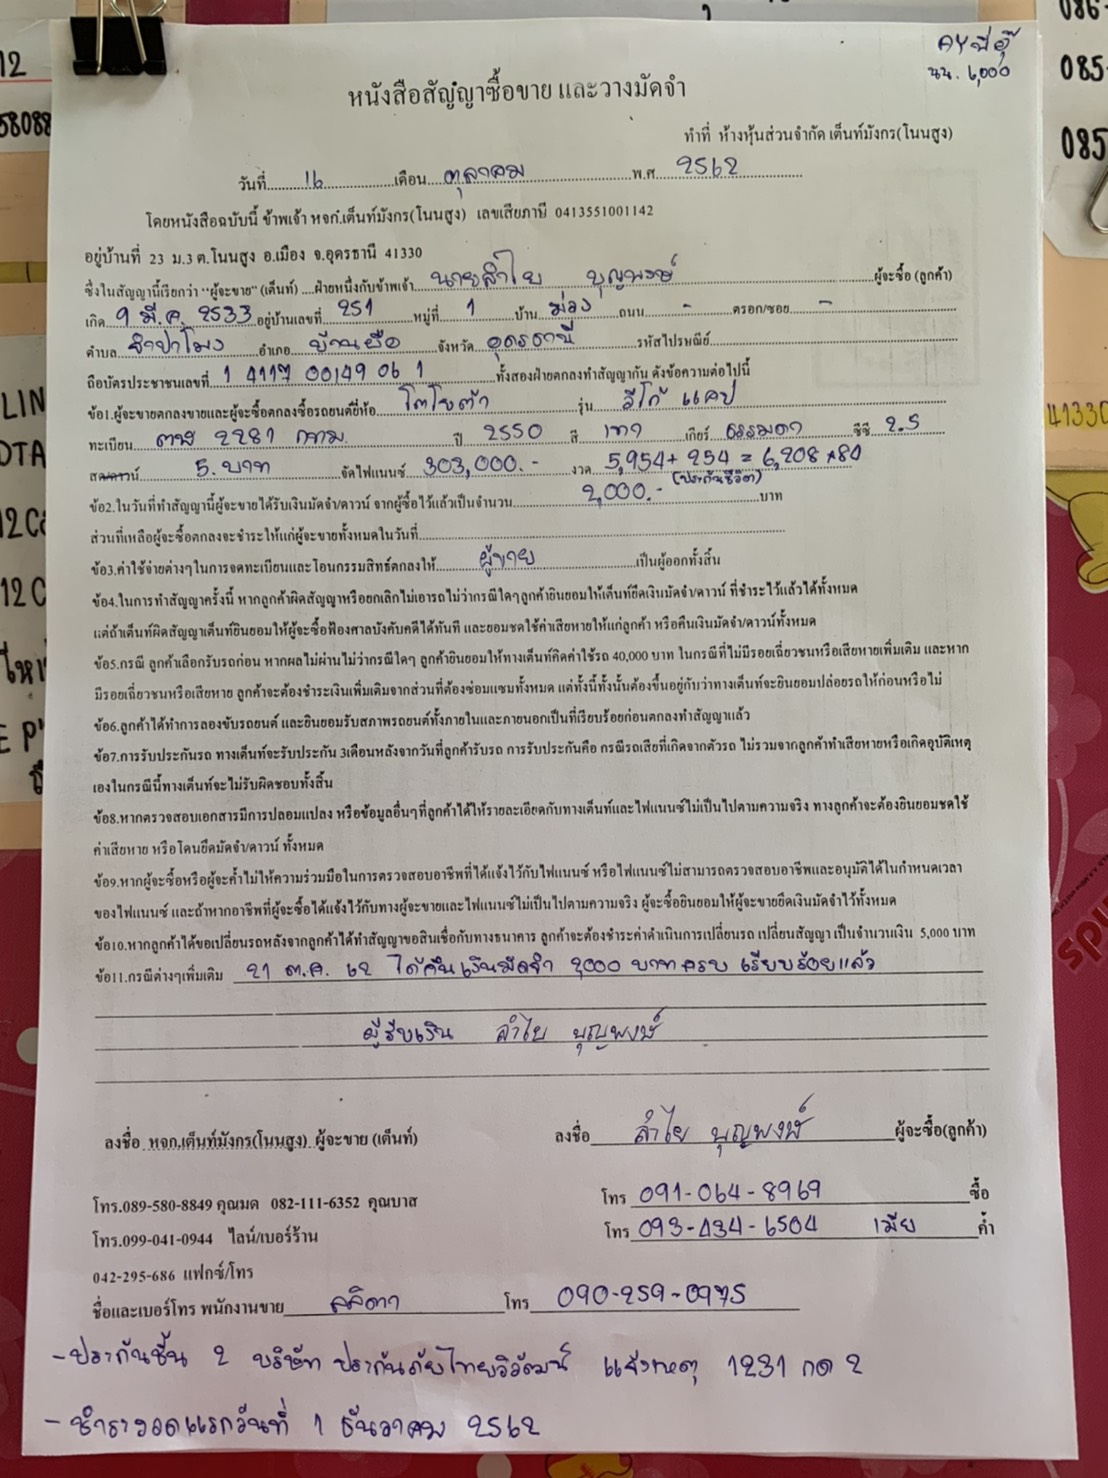 นน. 6,000
หนังสือสัญญาซื้อขาย และวางมัดจำ
ทำที่ ห้างหุ้นส่วนจำกัด เต็นท์มังกร(โนนสูง)
วันที่ 16 เดือน ตุลาคม พ.ศ 2562
โดยหนังสือฉบับนี้ ข้าพเจ้า หจก.เต็นท์มังกร(โนนสูง) เลขเสียภาษี 0413551001142
อยู่บ้านที่ 23 ม.3 ต.โนนสูง อ.เมือง จ.อุดรธานี 41330
ซึ่งในสัญญานี้เรียกว่า "ผู้จะขาย" (เต็นท์) ....ฝ่ายหนึ่งกับข้าพเจ้า นายลำไย บุญพงษ์ ผู้จะซื้อ (ลูกค้า)
เกิด 9 มี.ค. 2533 อยู่บ้านเลขที่ 251 หมู่ที่ 1 บ้าน ม่วง ถนน - ตรอก/ซอย -
ตำบล จำปาโมง อำเภอ บ้านผือ จังหวัด อุดรธานี รหัสไปรษณีย์
ถือบัตรประชาชนเลขที่ 1 4117 00149 06 1 ทั้งสองฝ่ายตกลงทำสัญญากัน ดังข้อความต่อไปนี้
ข้อ1.ผู้จะขายตกลงขายและผู้จะซื้อตกลงซื้อรถยนต์ยี่ห้อ โตโยต้า รุ่น วีโก้ แคป
ทะเบียน ฒฬ 2281 กทม. ปี 2550 สี เทา เกียร์ ธรรมดา ซีซี 2.5
สดดาวน์ 5. บาท จัดไฟแนนซ์ 303,000.- งวด 5,954 + 254 = 6,208 x 84
(ประกันชีวิต)
ข้อ2.ในวันที่ทำสัญญานี้ผู้จะขายได้รับเงินมัดจำ/ดาวน์ จากผู้ซื้อไว้แล้วเป็นจำนวน 2,000.- บาท
ส่วนที่เหลือผู้จะซื้อตกลงจะชำระให้แก่ผู้จะขายทั้งหมดในวันที่
ข้อ3.ค่าใช้จ่ายต่างๆในการจดทะเบียนและโอนกรรมสิทธ์ตกลงให้ ผู้ขาย เป็นผู้ออกทั้งสิ้น
ข้อ4.ในการทำสัญญาครั้งนี้ หากลูกค้าผิดสัญญาหรือยกเลิกไม่เอารถไม่ว่ากรณีใดๆลูกค้ายินยอมให้เต็นท์ยึดเงินมัดจำ/ดาวน์ ที่ชำระไว้แล้วได้ทั้งหมด
แต่ถ้าเต็นท์ผิดสัญญาเต็นท์ยินยอมให้ผู้จะซื้อฟ้องศาลบังคับคดีได้ทันที และยอมชดใช้ค่าเสียหายให้แก่ลูกค้า หรือคืนเงินมัดจำ/ดาวน์ทั้งหมด
ข้อ5.กรณี ลูกค้าเลือกรับรถก่อน หากผลไม่ผ่านไม่ว่ากรณีใดๆ ลูกค้ายินยอมให้ทางเต็นท์คิดค่าใช้รถ 40,000 บาท ในกรณีที่ไม่มีรอยเฉี่ยวชนหรือเสียหายเพิ่มเติม และหาก
มีรอยเฉี่ยวชนหรือเสียหาย ลูกค้าจะต้องชำระเงินเพิ่มเติมจากส่วนที่ต้องซ่อมแซมทั้งหมด แต่ทั้งนี้ทั้งนั้นต้องขึ้นอยู่กับว่าทางเต็นท์จะยินยอมปล่อยรถให้ก่อนหรือไม่
ข้อ6.ลูกค้าได้ทำการลองขับรถยนต์ และยินยอมรับสภาพรถยนต์ทั้งภายในและภายนอกเป็นที่เรียบร้อยก่อนตกลงทำสัญญาแล้ว
ข้อ7.การรับประกันรถ ทางเต็นท์จะรับประกัน 3เดือนหลังจากวันที่ลูกค้ารับรถ การรับประกันคือ กรณีรถเสียที่เกิดจากตัวรถ ไม่รวมจากลูกค้าทำเสียหายหรือเกิดอุบัติเหตุ
เองในกรณีนี้ทางเต็นท์จะไม่รับผิดชอบทั้งสิ้น
ข้อ8.หากตรวจสอบเอกสารมีการปลอมแปลง หรือข้อมูลอื่นๆที่ลูกค้าได้ให้รายละเอียดกับทางเต็นท์และไฟแนนซ์ไม่เป็นไปตามความจริง ทางลูกค้าจะต้องยินยอมชดใช้
ค่าเสียหาย หรือโดนยึดมัดจำ/ดาวน์ ทั้งหมด
ข้อ9.หากผู้จะซื้อหรือผู้จะค้ำไม่ให้ความร่วมมือในการตรวจสอบอาชีพที่ได้แจ้งไว้กับไฟแนนซ์ หรือไฟแนนซ์ไม่สามารถตรวจสอบอาชีพและอนุมัติได้ในกำหนดเวลา
ของไฟแนนซ์ และถ้าหากอาชีพที่ผู้จะซื้อได้แจ้งไว้กับทางผู้จะขายและไฟแนนซ์ไม่เป็นไปตามความจริง ผู้จะซื้อยินยอมให้ผู้จะขายยึดเงินมัดจำไว้ทั้งหมด
ข้อ10.หากลูกค้าได้ขอเปลี่ยนรถหลังจากลูกค้าได้ทำสัญญาขอสินเชื่อกับทางธนาคาร ลูกค้าจะต้องชำระค่าดำเนินการเปลี่ยนรถ เปลี่ยนสัญญา เป็นจำนวนเงิน 5,000 บาท
ข้อ11.กรณีต่างๆเพิ่มเติม 21 ต.ค. 62 ได้คืนเงินมัดจำ 2,000 บาทครบ เรียบร้อยแล้ว
ผู้รับเงิน ลำไย บุญพงษ์
ลงชื่อ หจก.เต็นท์มังกร(โนนสูง) ผู้จะขาย (เต็นท์) ลงชื่อ ลำไย บุญพงษ์ ผู้จะซื้อ(ลูกค้า)
โทร.089-580-8849 คุณมด 082-111-6352 คุณบาส โทร 091-064-8969 ซื้อ
โทร.099-041-0944 ไลน์/เบอร์ร้าน โทร 093-434-6504 เมีย ค้ำ
042-295-686 แฟกซ์/โทร
ชื่อและเบอร์โทร พนักงานขาย ลลิตา โทร 090-259-0975
- ประกันชั้น 2 บริษัท ประกันภัยไทยวิวัฒน์ แจ้งเหตุ 1231 กด 2
- ชำระงวดแรกวันที่ 1 ธันวาคม 2562
41330